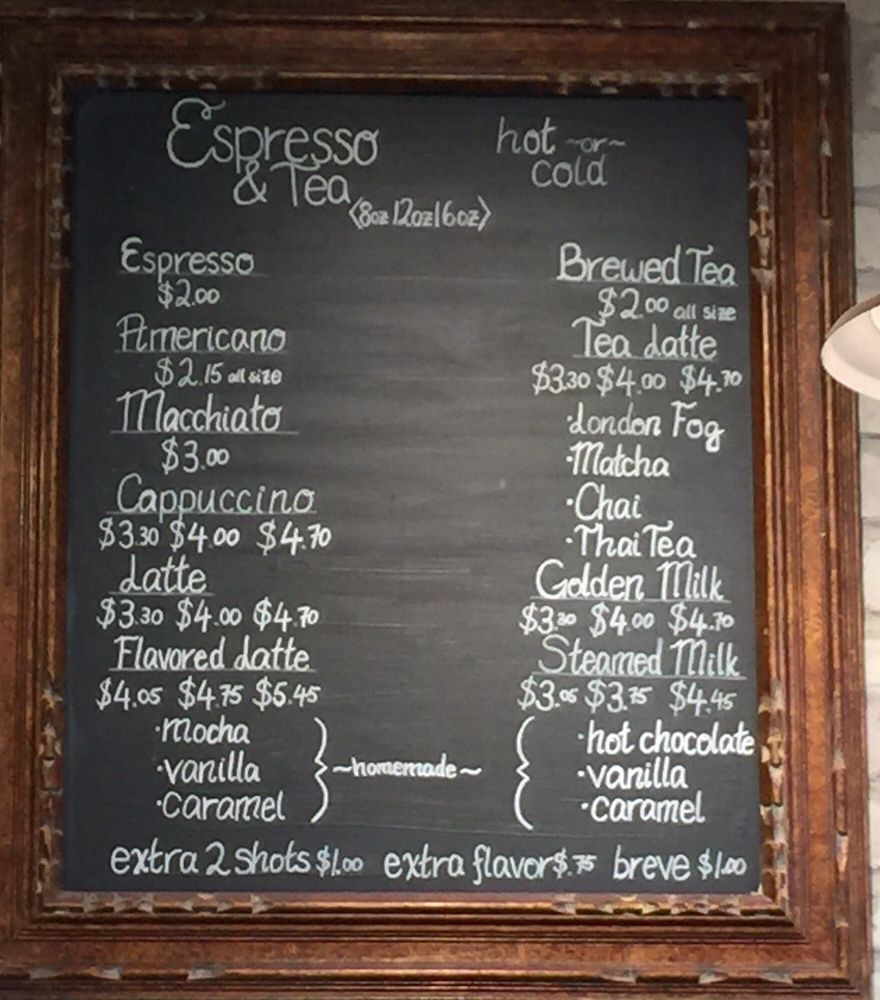 Espresso
& Tea
hot ~or~
cold
<8oz 12oz 16oz>
Espresso
$2.00
Americano
$2.15 all size
Macchiato
$3.00
Cappuccino
$3.30 $4.00 $4.70
Latte
$3.30 $4.00 $4.70
Flavored Latte
$4.05 $4.75 $5.45
·mocha
·vanilla
·caramel
~homemade~
Brewed Tea
$2.00 all size
Tea Latte
$3.30 $4.00 $4.70
·London Fog
·Matcha
·Chai
·Thai Tea
Golden Milk
$3.30 $4.00 $4.70
Steamed Milk
$3.05 $3.75 $4.45
·hot chocolate
·vanilla
·caramel
extra 2 shots $1.00 extra flavor $.75 breve $1.00